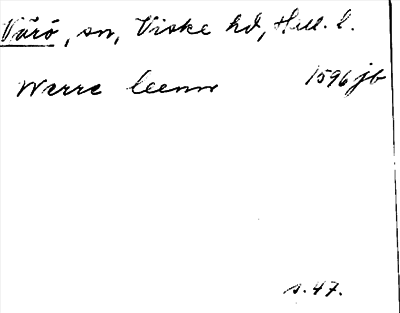 Värö, sn, Viske hd, Hall. l.
Werre leenn 1596 jb
s. 47.